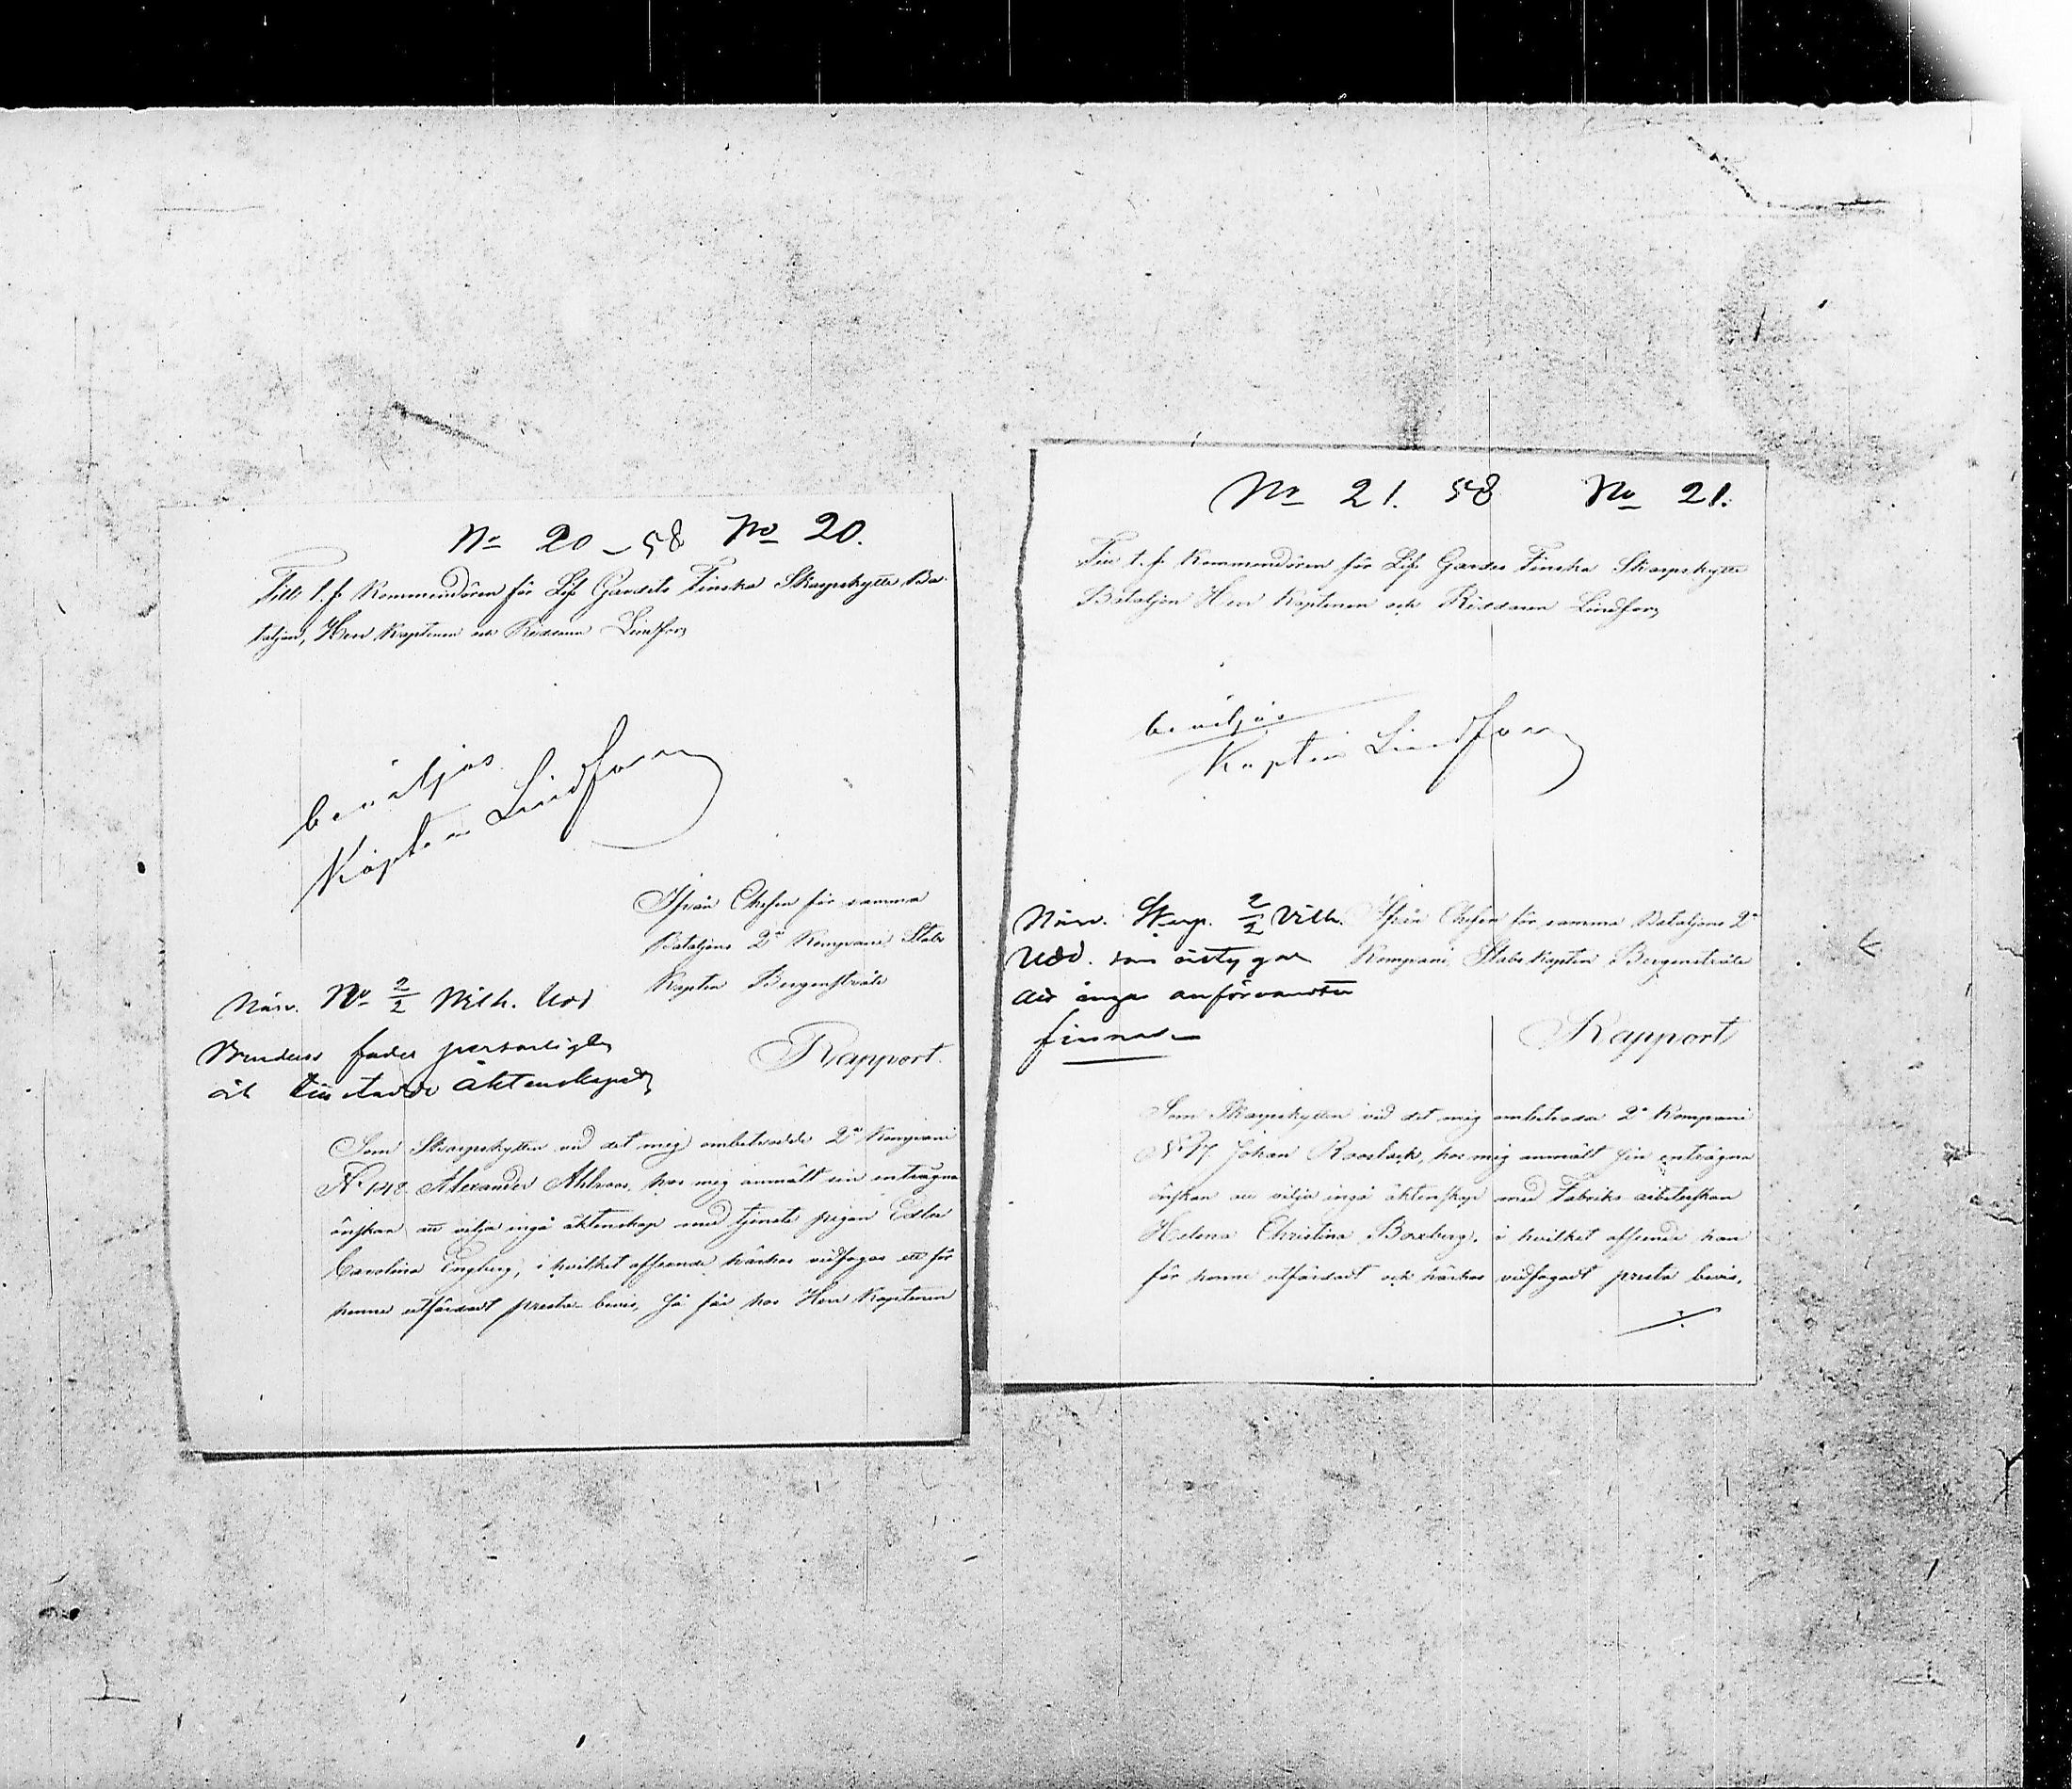 No 20 – 58 No 20.
Till t. f. Kommendören för Lif Gardets Finska Skarpskytte Ba-
taljon, Herr Kaptenen och Riddaren Lindfors
beviljas
Kapten Lindfors
Ifrån Chefen för samma
Bataljons 2a Kompani Stabs
Kapten Bergenstråle
Närv. No 2/2 Wilh. Udd
Brudens fader personligen
Rapport.
Som Skarpskytten vid det mig anbetrodde 2a Kompani
No 148 Alexander Ahlroos, hos mig anmält sin enträgna
önskan att vilja ingå äktenskap med tjenste pigan Edla
Carolina Engberg, i hvilket afseende härhos vidfogas ett för
henne utfärdadt preste-bevis, så får hos Herr Kaptenen
No 21. 58 No 21.
Till t. f. Kommendören för Lif Gardes Finska Skarpskytte
Bataljon Herr Kaptenen och Riddaren Lindfors
beviljas
Kapten Lindfors
Ifrån Chefen för samma Bataljons 2a
Kompani, Stabs Kapten Bergenstråle
Närv. Skarp. 2/2 Vilh.
Udd. som intygar
att inga anförvandter
finnas
Rapport
Som Skarpskytten vid det mig anbetrodda 2a Kompani
No 17 Johan Rooslack, hos mig anmält sin enträgna
önskan att vilja ingå äktenskap med Fabriks arbeterskan
Helena Christina Boxberg, i hvilket afseende han
för henne utfärdadt och härhos vidfogadt preste bevis,